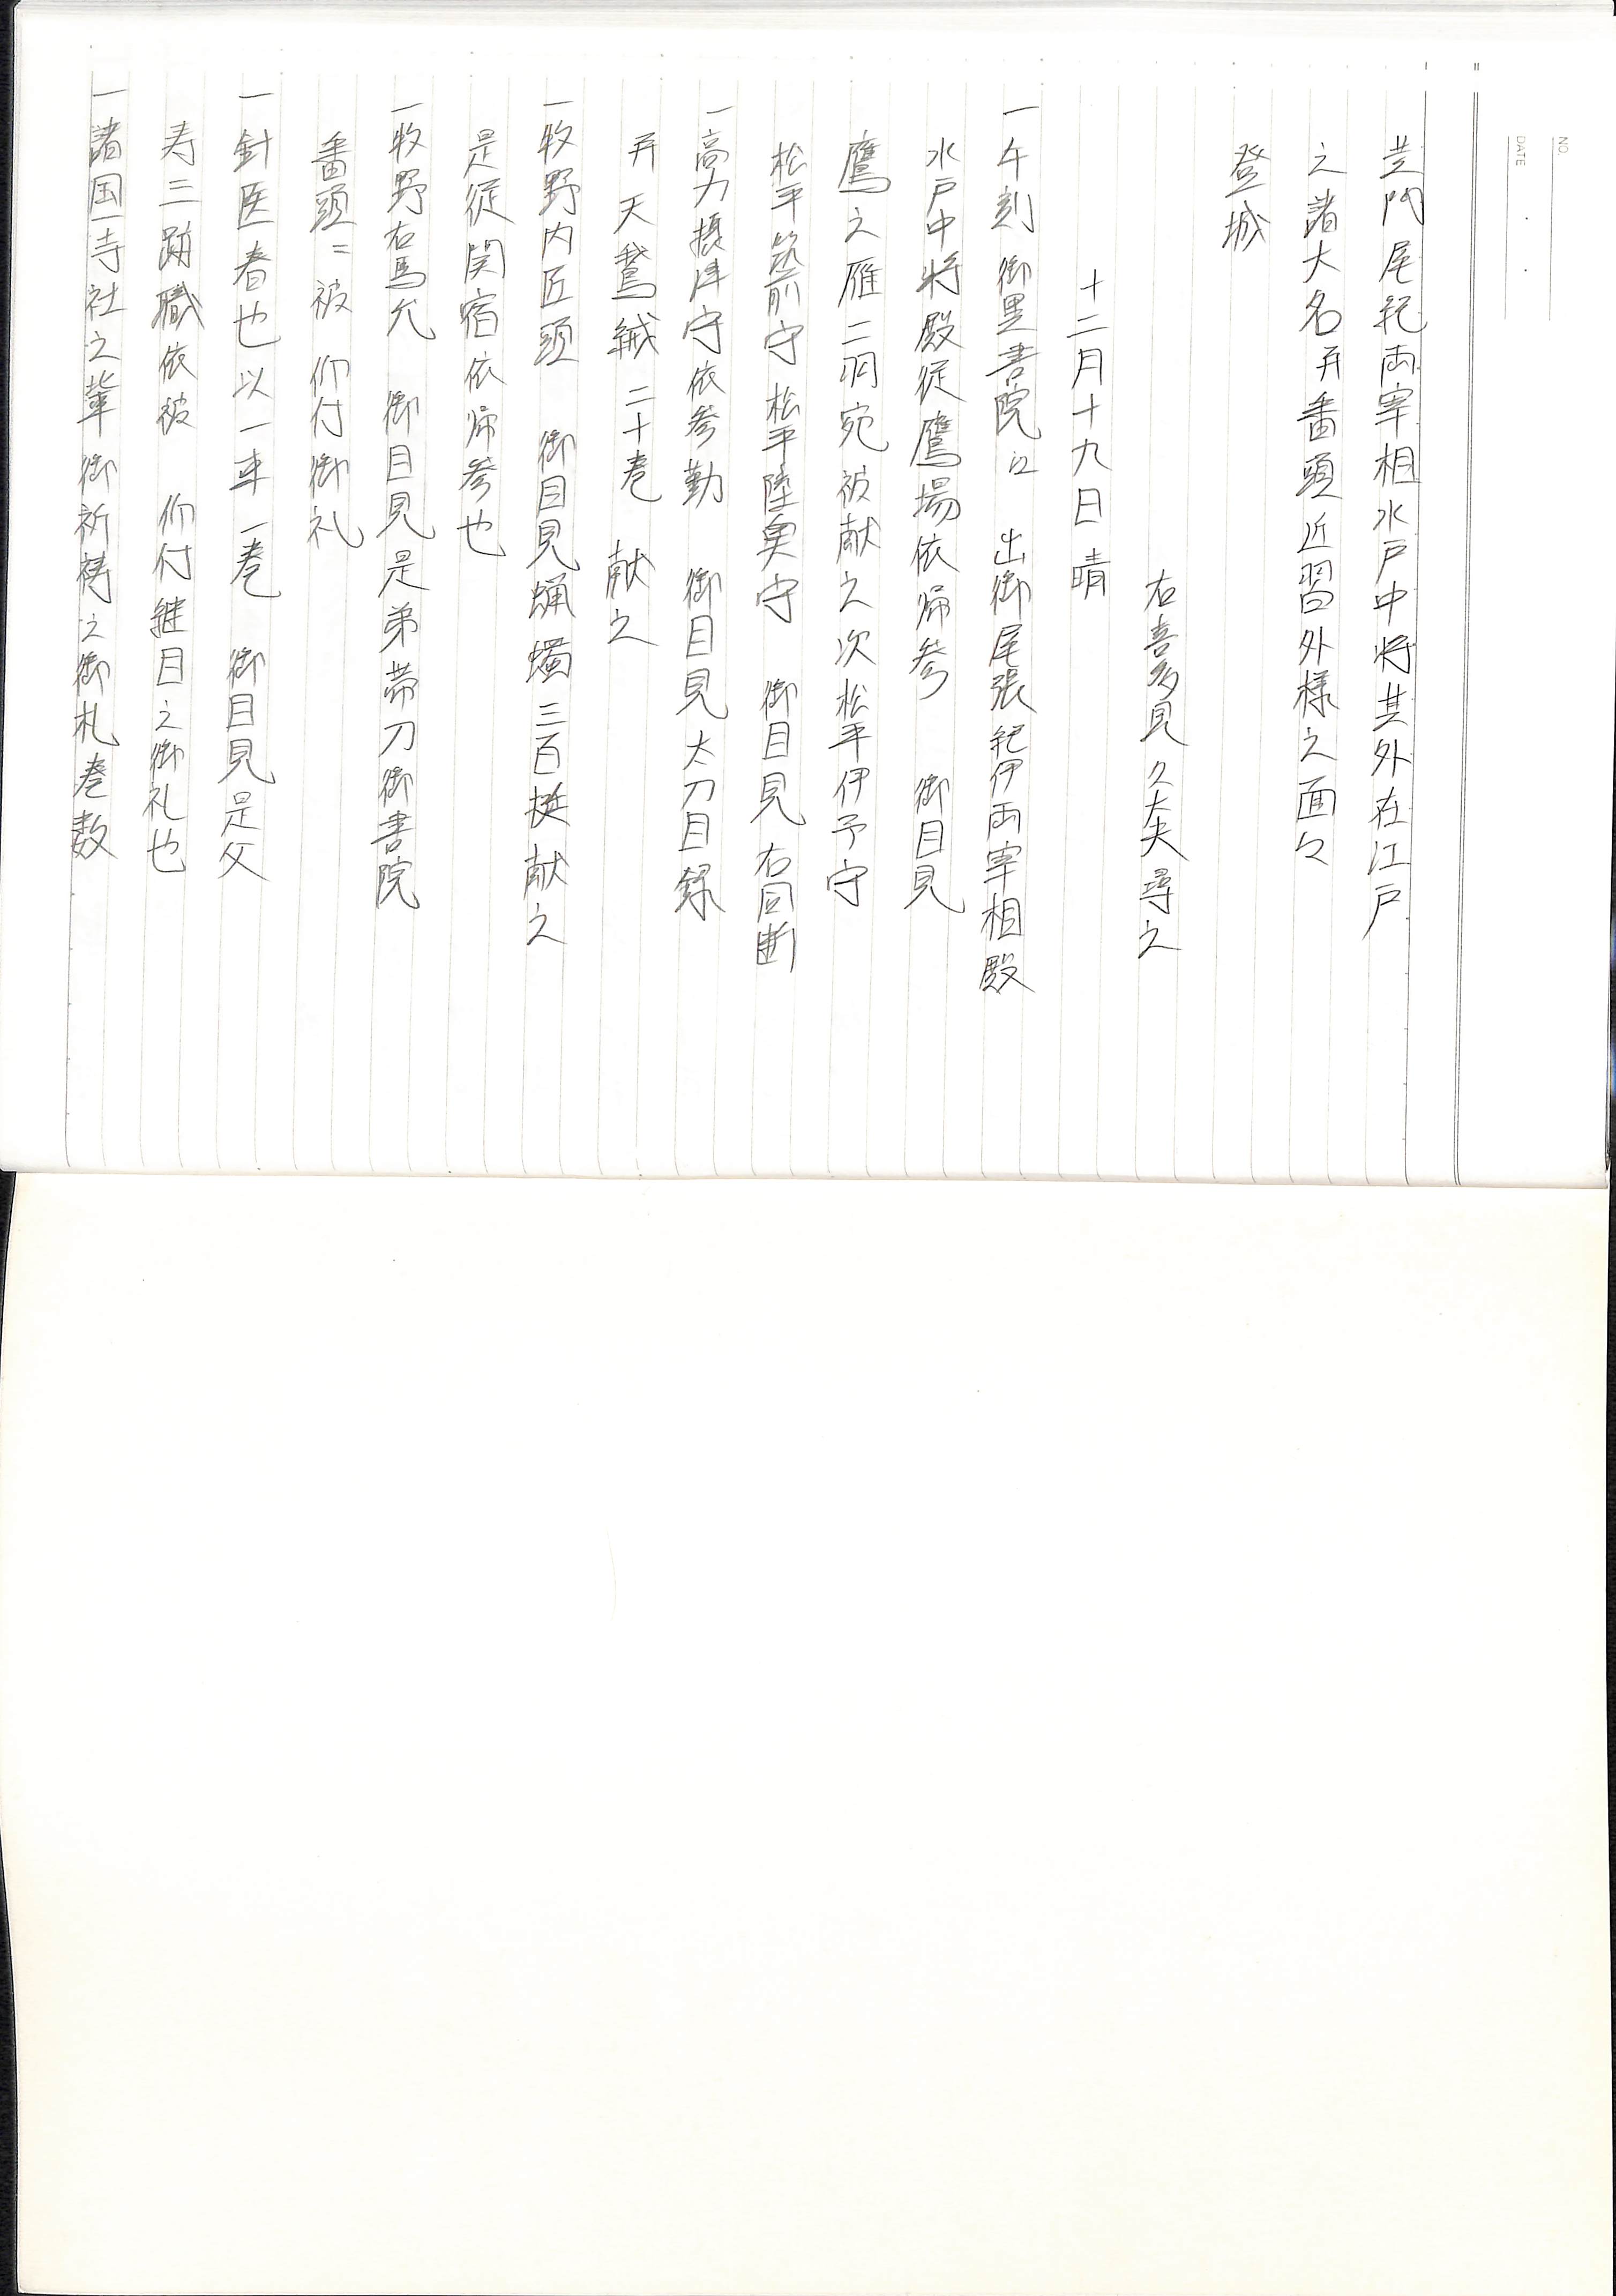 NO
DATE
其門尾紀両宰相水戸中将其外在江戸
之諸大名并番頭近習外様之面々
登城
右喜多見久太夫尋之
十二月十九日晴
一午刻御黒書院江 出御尾張紀伊両宰相殿
水戸中将殿従鷹場依帰参 御目見
鷹之雁二羽宛被献之次松平伊予守
松平筑前守松平陸奥守 御目見右同断
一高力摂津守依参勤 御目見太刀目録
并天鵞絨二十巻 献之
一牧野内匠頭 御目見蝋燭三百挺献之
是従関宿依帰参也
一牧野右馬允 御目見是弟帯刀御書院
番頭ニ被 仰付御礼
一針医春也以一本一巻 御目見是父
寿三跡職依被 仰付継目之御礼也
一諸国寺社之輩御祈祷之御札巻数